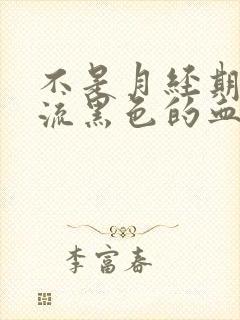 不是月经期
流黑色的血
李富春